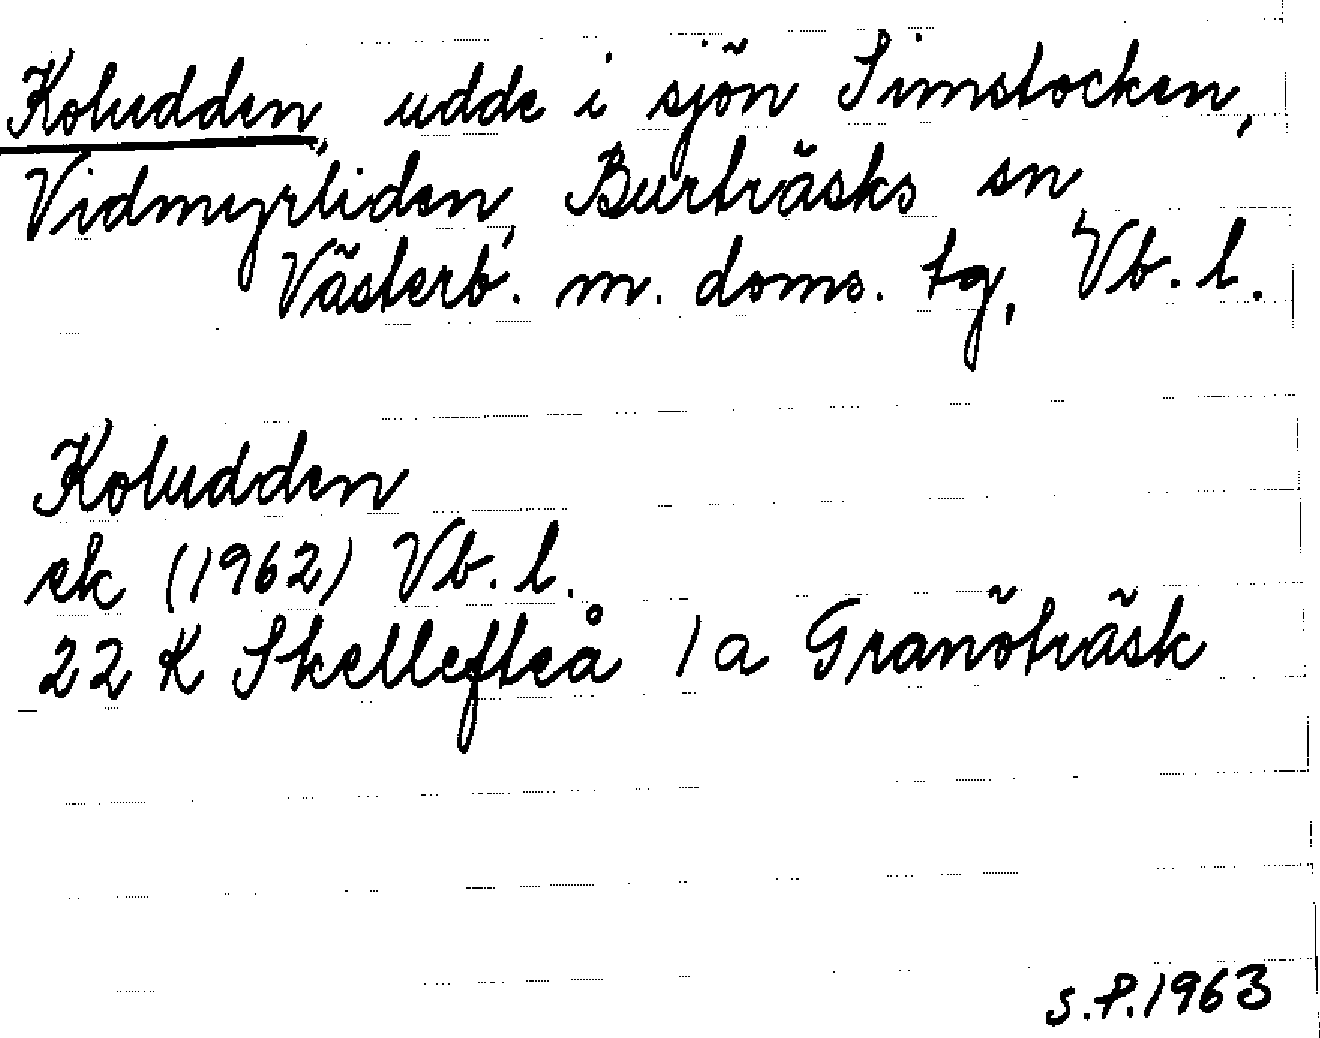 Koludden, udde i sjön Simstocken,
Vidmyrliden, Burträsks sn,
Västerb. m. doms. tg, Vb. l.
Koludden
ek (1962) Vb. l.
22 K Skellefteå 1 a Granöträsk
S.P.1963